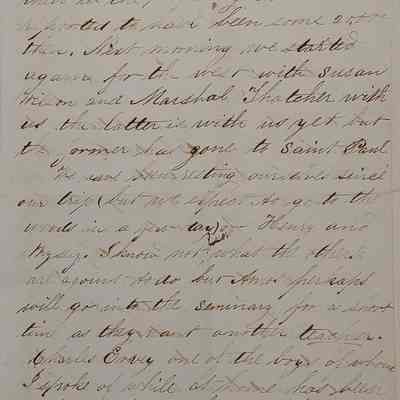 reported to have been some 20
then. Next morning we started
again for the west with Susan
and Marshal Thatcher with
us the latter is with us yet but
the former has gone to Saint Paul
We have been resting ourselves since
our trip (but we expect to go to the
woods in a few days) or Henry and
I know not what the others
are agoing to do but Amos perhaps
will go into the Seminary for a short
time as they want another teacher.
Charles one of the boys of whom
I spoke of while at home has been